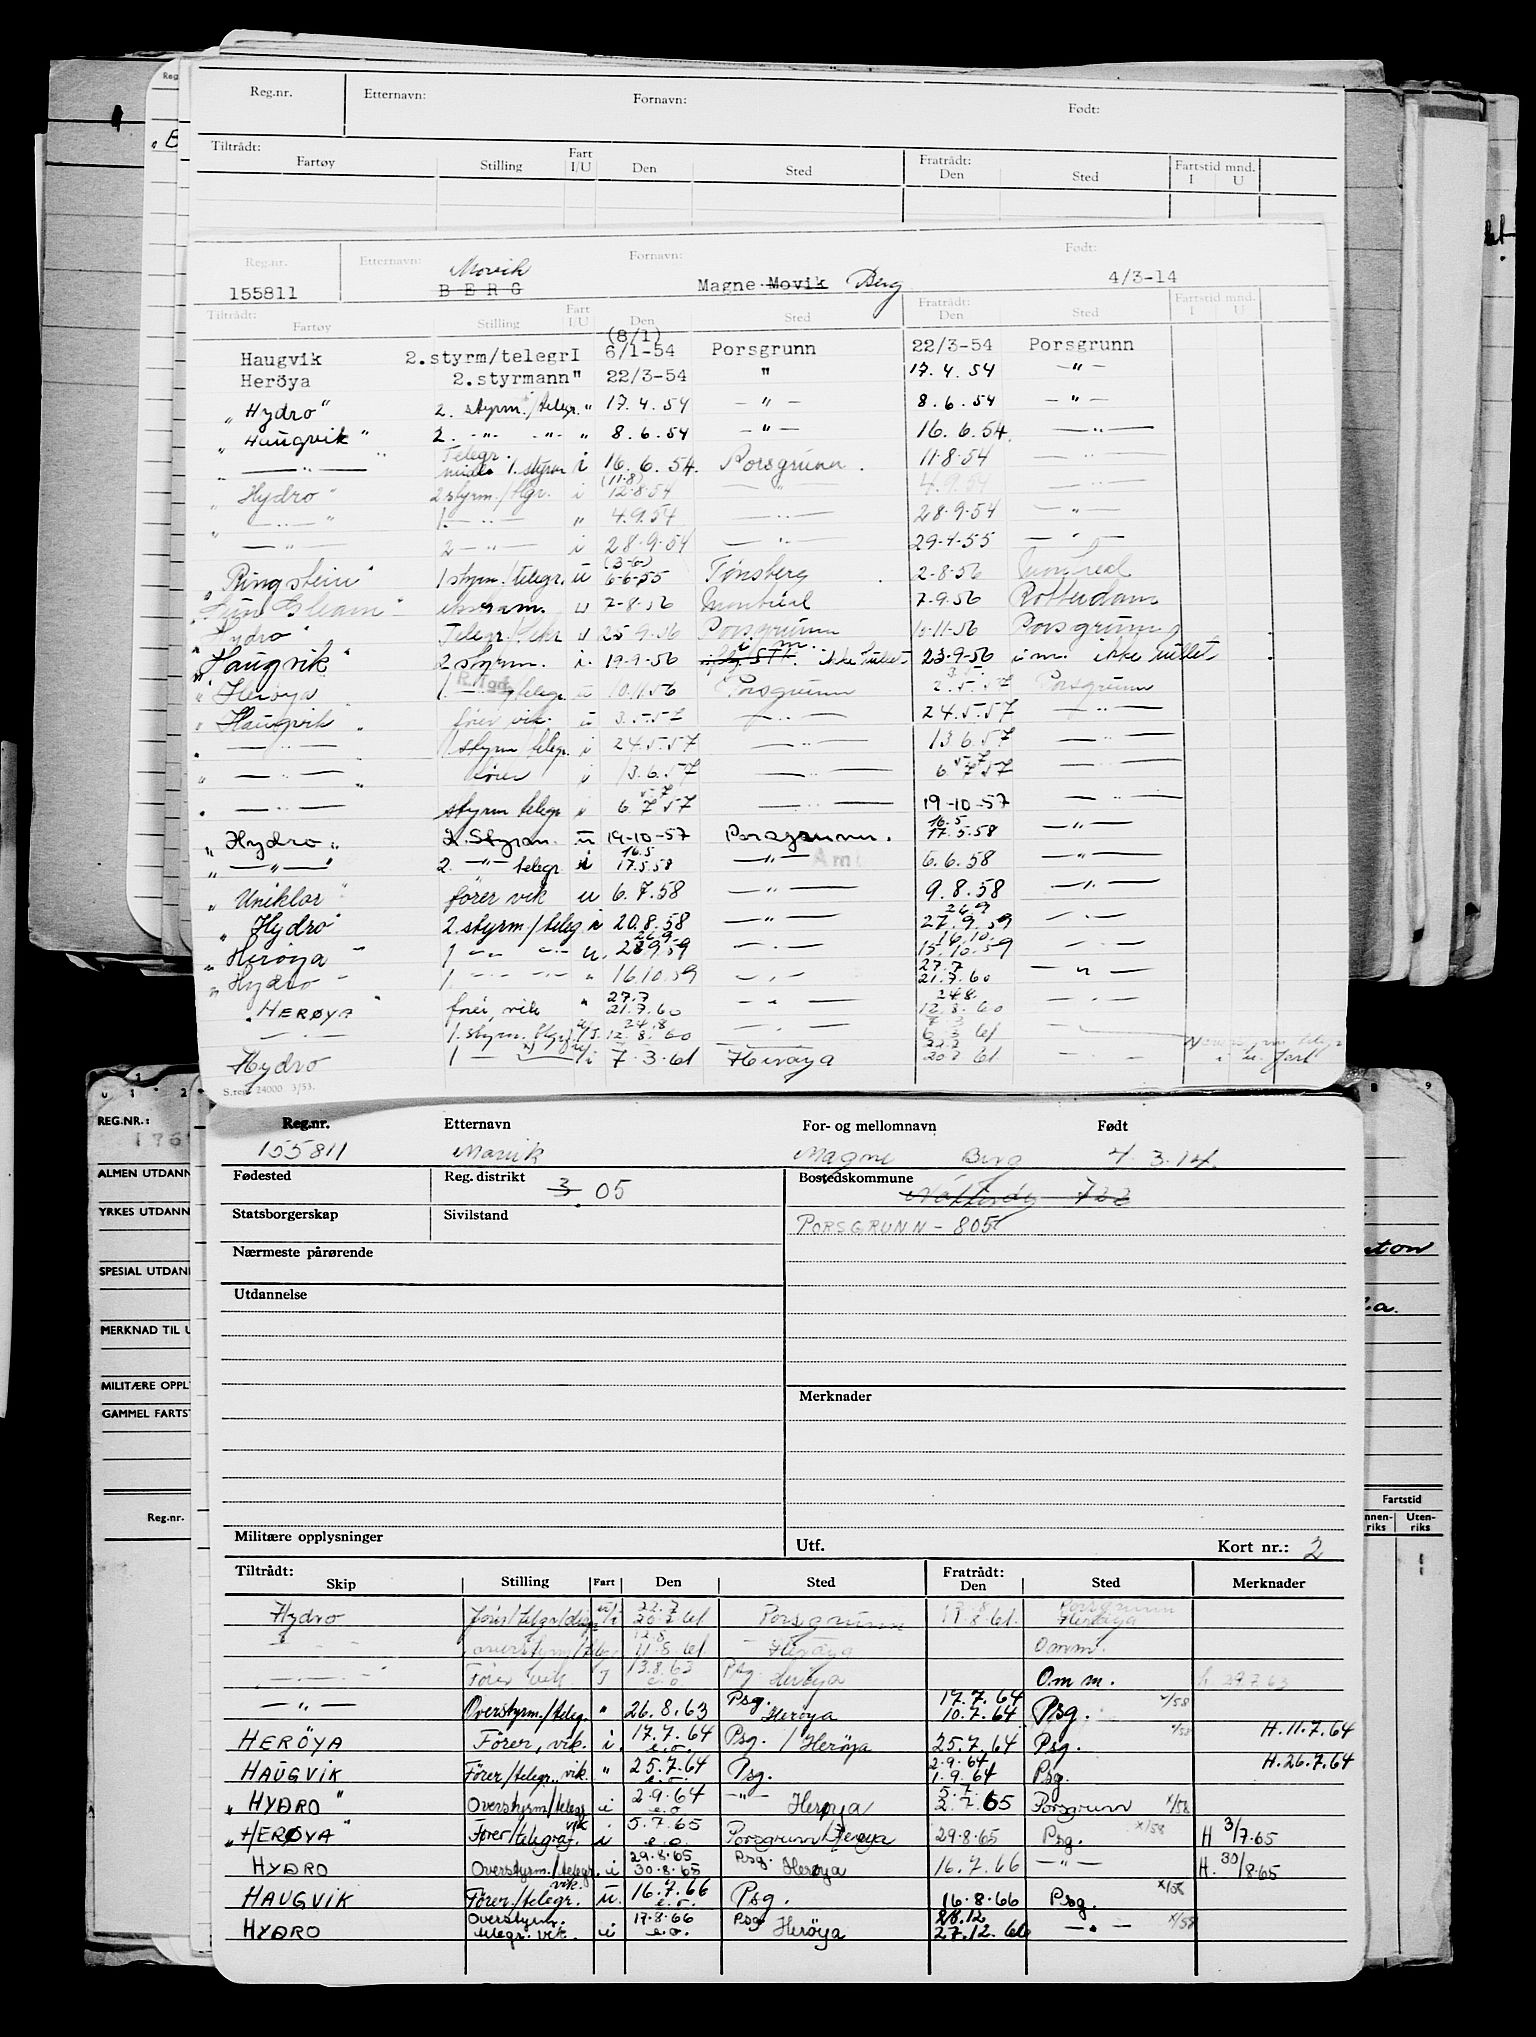 Reg.nr. Etternavn: Fornavn: Født:
Tiltrådt: Fratrådt:
Fartøy Stilling Fart I/U Den Sted Den Sted Fartstid mnd. I U
Reg.nr. Etternavn: Fornavn: Født:
155811 Movik BERG Magne Movik Berg 4/3-14
Tiltrådt: Fratrådt:
Fartøy Stilling Fart I/U Den Sted Den Sted Fartstid mnd. I U
(8/1)
Haugvik 2.styrm/telegr I 6/1-54 Porsgrunn 22/3-54 Porsgrunn
Heröya 2.styrmann " 22/3-54 " 17.4.54 - " -
„ Hydro" 2. styrm./telegr. " 17.4.54 - " - 8.6.54 - " -
„ Haugvik" 2. - " - - " - " 8.6.54 - " - 16.6.54. - " -
- " - Telegr. 1. styrm i 16.6.54. Porsgrunn. 11.8.54 - " -
(11.8)
„ Hydro" 2 styrm./tlgr. i 12.8.54 - " - 4.9.54 - " -
„ - " - " 1. - " - " 4.9.54 - " - 28.9.54 - " -
- " - 2 - " - i 28.9.54 - " - 29.4.55 - " -
„ Ringstein" 1 styrm./telegr. u 6-6-55 Tönsberg 2-8-56 Montreal
u 7-8-56 Montreal 7-9-56 Rotterdam
„ Hydro" Telegr. u 25.9.56 Porsgrunn 10-11-56 Porsgrunn
„ Haugvik" 2 styrm. i. 19.9.56 i m. ikke tillet 23.9-56 i m. ikke tillet
„ Heröya 1. - telegr. 10.11.56 Porsgrunn 2.5.57 Porsgrunn
„ Haugvik förer vik. u 3.5.57 - " - 24.5.57 - " -
- " - 1 styrm telegr. i 24.5.57 - " - 13.6.57 - " -
- " - förer i 13.6.57 - " - 6.7.57 - " -
- " - styrm telegr i 6.7.57 - " - 19-10-57 - " -
„ Hydro „ 2. Styrm. u 19-10-57 Porsgrunn. 16.5 17.5.58 - " -
„ - " - " 2. - " - telegr. i 16.5 17.5.58 - " - 6.6.58 - " -
„ Uniklor" förer vik u 6.7.58 - " - 9.8.58 - " -
„ Hydro" 2. styrm./teleg i 20.8.58 - " - 26.9 27.9.59 - " -
„ Heröya " 1 - " - u. 26.9 28.9.59 - " - 16.10. 15.10.59 - " -
„ Hydro " 1. - " - " 16.10.59 - " - 27.7 21.7.60 - " -
„ HERØYA " förer, vik " 27.7 21.7.60 - " - 24.8. 12.8.60 - " -
- " - 1. styrm. telegr. 24.8 12.8.60 - " - 7.3 6.3.61 - " -
Hydro 1 - " - i 7.3.61 Heröya 22.7 20.7.61 - " - i u. fart
S.reg. 24000 3/53.
REG.NR.:
ALMEN UTDANN
YRKES UTDANN
SPESIAL UTDANN
MERKNAD TIL U
MILITÆRE OPPL
GAMMEL FARTST
Reg.nr.
Fartstid
Uten-riks
Reg.nr. Etternavn For- og mellomnavn Født
155811 Movik Magne Berg 4.3.14.
Fødested Reg. distrikt 3. 05 Bostedskommune Nøtterøy 722
Statsborgerskap Sivilstand PORSGRUNN - 805
Nærmeste pårørende
Utdannelse
Merknader
Militære opplysninger Utf. Kort nr.: 2
Tiltrådt: Fratrådt:
Skip Stilling Fart Den Sted Den Sted Merknader
Hydro u/i 22.7 20.7.61 Porsgrunn 11.8.61. Porsgrunn Heröya
- " - 12.8 11.8.61 Heröya Omm.
- " - Förer vik I 13.8.63 e.o. Psg. Heröya Omm. h 29.7.63
- " - Overstyrm./teleg. " 26.8.63 Psg. Heröya 17.7.64 10.7.64 Psg. x/58
HERÖYA Förer, vik. i. 17.7.64 e.o. Psg. / Heröya 25.7.64 Psg. x/58 H.11.7.64
HAUGVIK Förer/telegr. vik. " 25.7.64 e.o. Psg. 2.9.64 1.9.64 Psg. H.26.7.64
„ HYDRO " Overstyrm/telegr i 2.9.64 e.o - " - Heröya 5.7. 2.7.65 Porsgrunn x/58
„ HERØYA " Förer/telegraf. vik i 5.7.65 e.o. Porsgrunn/Heröya 29.8.65 Psg. x/58 H 3/7.65
HYDRO Overstyrm./telegr. i 29.8.65 30.8.65 Psg. Heröya 16.7.66 - " - H. 30/8.65
HAUGVIK Förer/telegr. vik. u. 16.7.66 e.o. Psg. 16.8.66 Psg. x/58
HYDRO Overstyrm. telegr. vik. i 17.8.66 e.o. Psg Heröya 28.12 27.12.66 - " - x/58